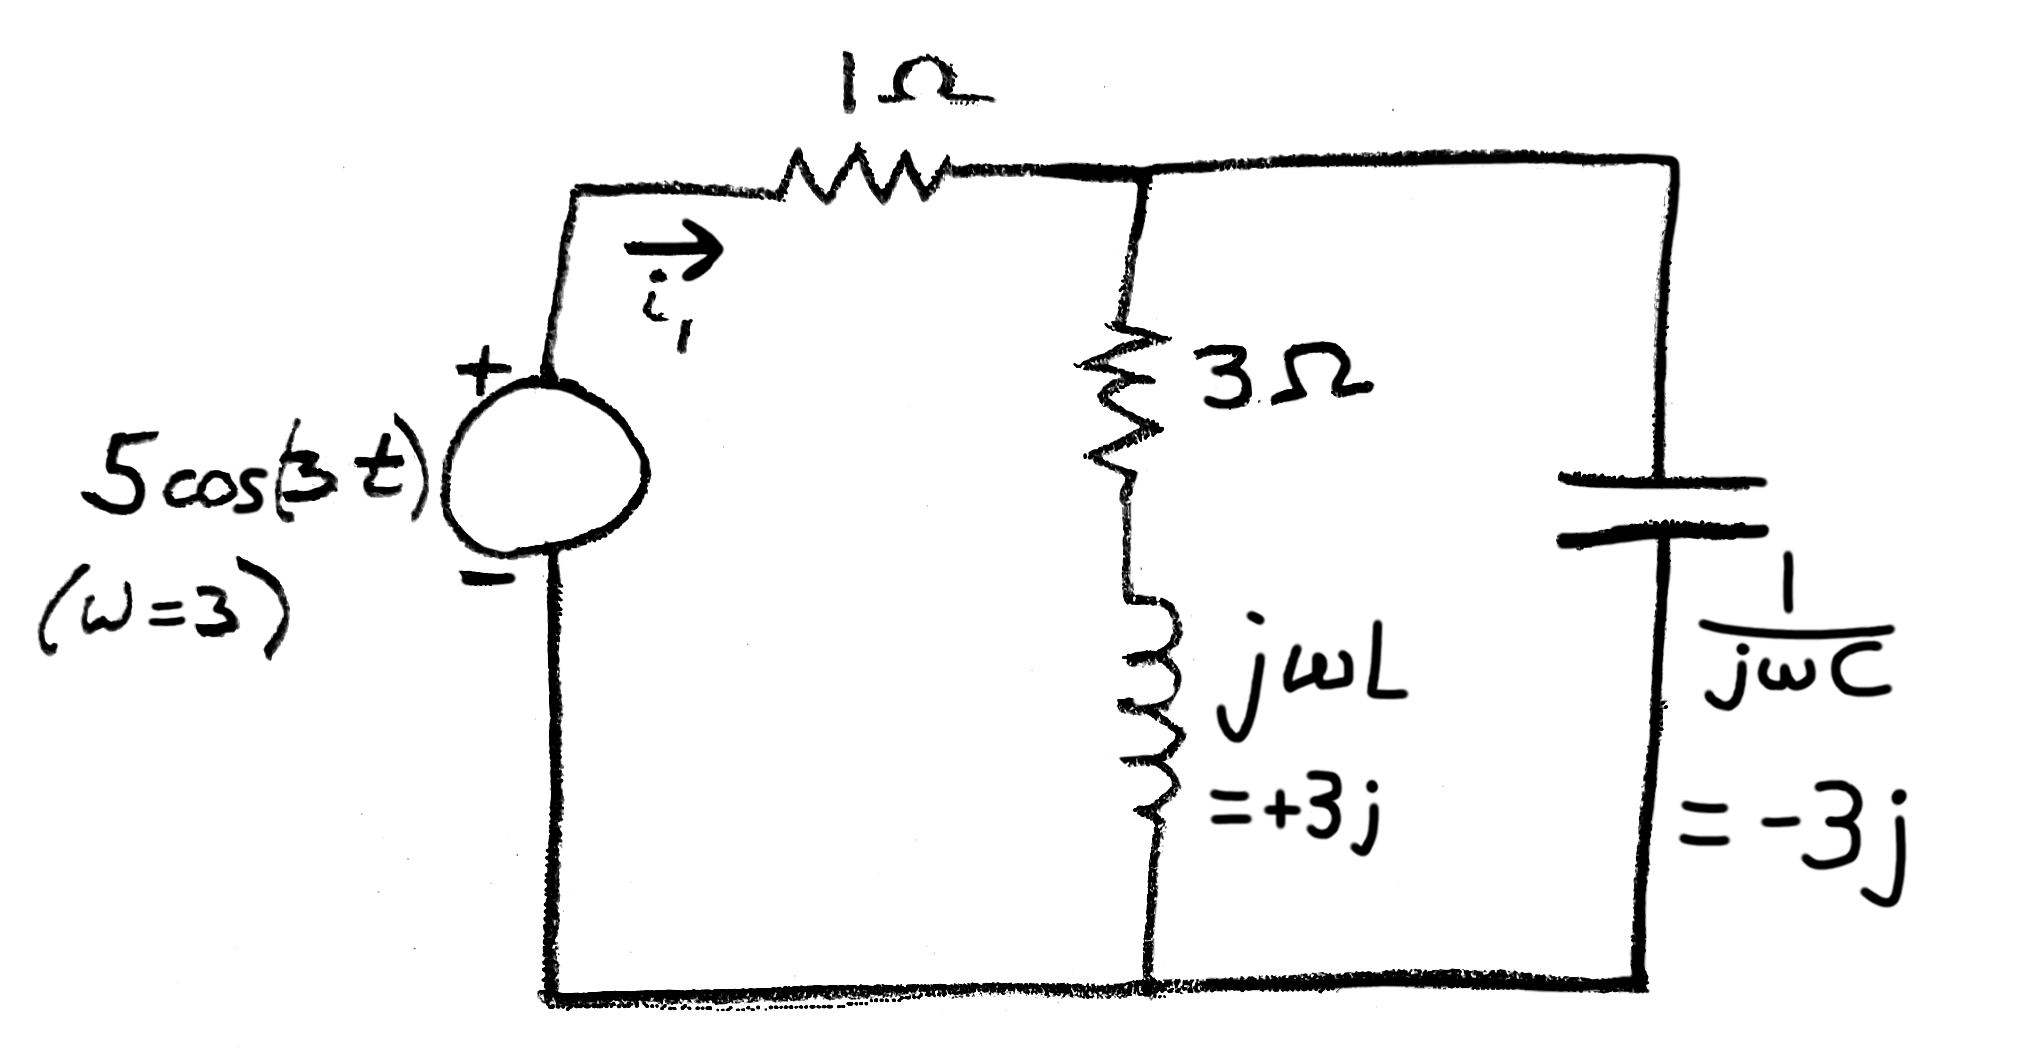 1 Ω
i₁
+
5 cos(3 t)
−
(ω = 3)
3 Ω
jωL
= +3j
1
jωC
= -3j